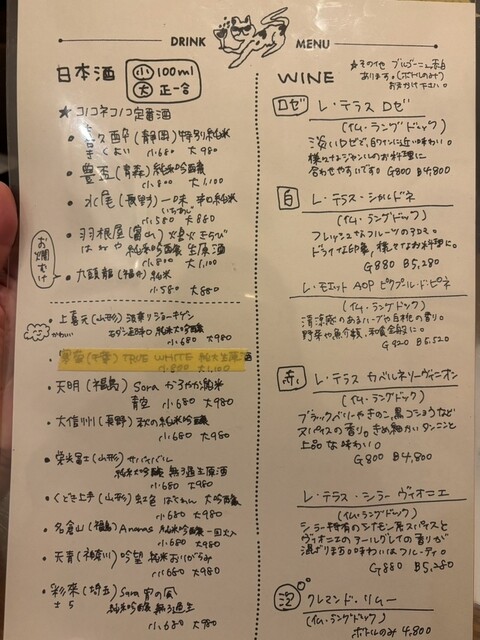 DRINK MENU
日本酒 小100ml 大 正一合
★コノネコノコ定番酒
(静岡)特別純米
小680 大980
豊盃(青森)純米吟醸
小800 大1,100
水尾(長野)一味 辛口純米
いちみ
小580 大880
羽根屋(富山)煌火きらび
はねや 純米吟醸 生原酒
小800 大1,100
お燗むけ
九頭龍(福井)純米
小580 大880
上喜元(山形)
かわいい
純米大吟醸
小680 大980
(千葉)TRUE WHITE 純大生原酒
小800 大1,100
天明(福島)Sora かろやか純米
青空 小680 大980
大信州(長野)秋の純米吟醸
小680 大980
栄光冨士(山形)サバイバル
純米大吟醸 無ろ過生原酒
小680 大980
くどき上手(山形)虹色 ばてれん 大吟醸
小680 大980
名倉山(福島)純米吟醸一回火入
小680 大980
天青(神奈川)吟望 純米おりがらみ
小680 大980
彩來(埼玉)Sara
さら 純米吟醸 無ろ過生
小680 大980
WINE
☆その他 ブルゴーニュ赤白
あります。(ボトルのみ)
おたずね下さい。
ロゼ レ・テラス ロゼ
(仏・ラングドック)
淡いロゼで、白ワインに近い味わい。
様々なジャンルのお料理に
合わせやすいです。 G800 B4,800
白 レ・テラス・シャルドネ
(仏・ラングドック)
フレッシュなフルーツのアロマ。
ドライな印象、様々なお料理に。
G880 B5,280
レ・モエット AOP ピクプール・ド・ピネ
(仏・ラングドック)
清涼感のあるハーブや白桃の香り。
野菜や魚介類、和食全般に。
G920 B5,520
赤 レ・テラス カベルネソーヴィニオン
(仏・ラングドック)
ブラックベリーやきのこ、黒コショウなど
スパイスの香り。きめ細かいタンニンと
上品な味わい。
G800 B4,800
レ・テラス・シラー ヴィオニエ
(仏・ラングドック)
シラー特有のシナモン系スパイスと
ヴィオニエのアールグレイの香りが
混ざりまろやかな味わいはフルーティ。
G880 B5,280
泡 クレマンド・リムー
(仏・ラングドック)
ボトルのみ 4,800